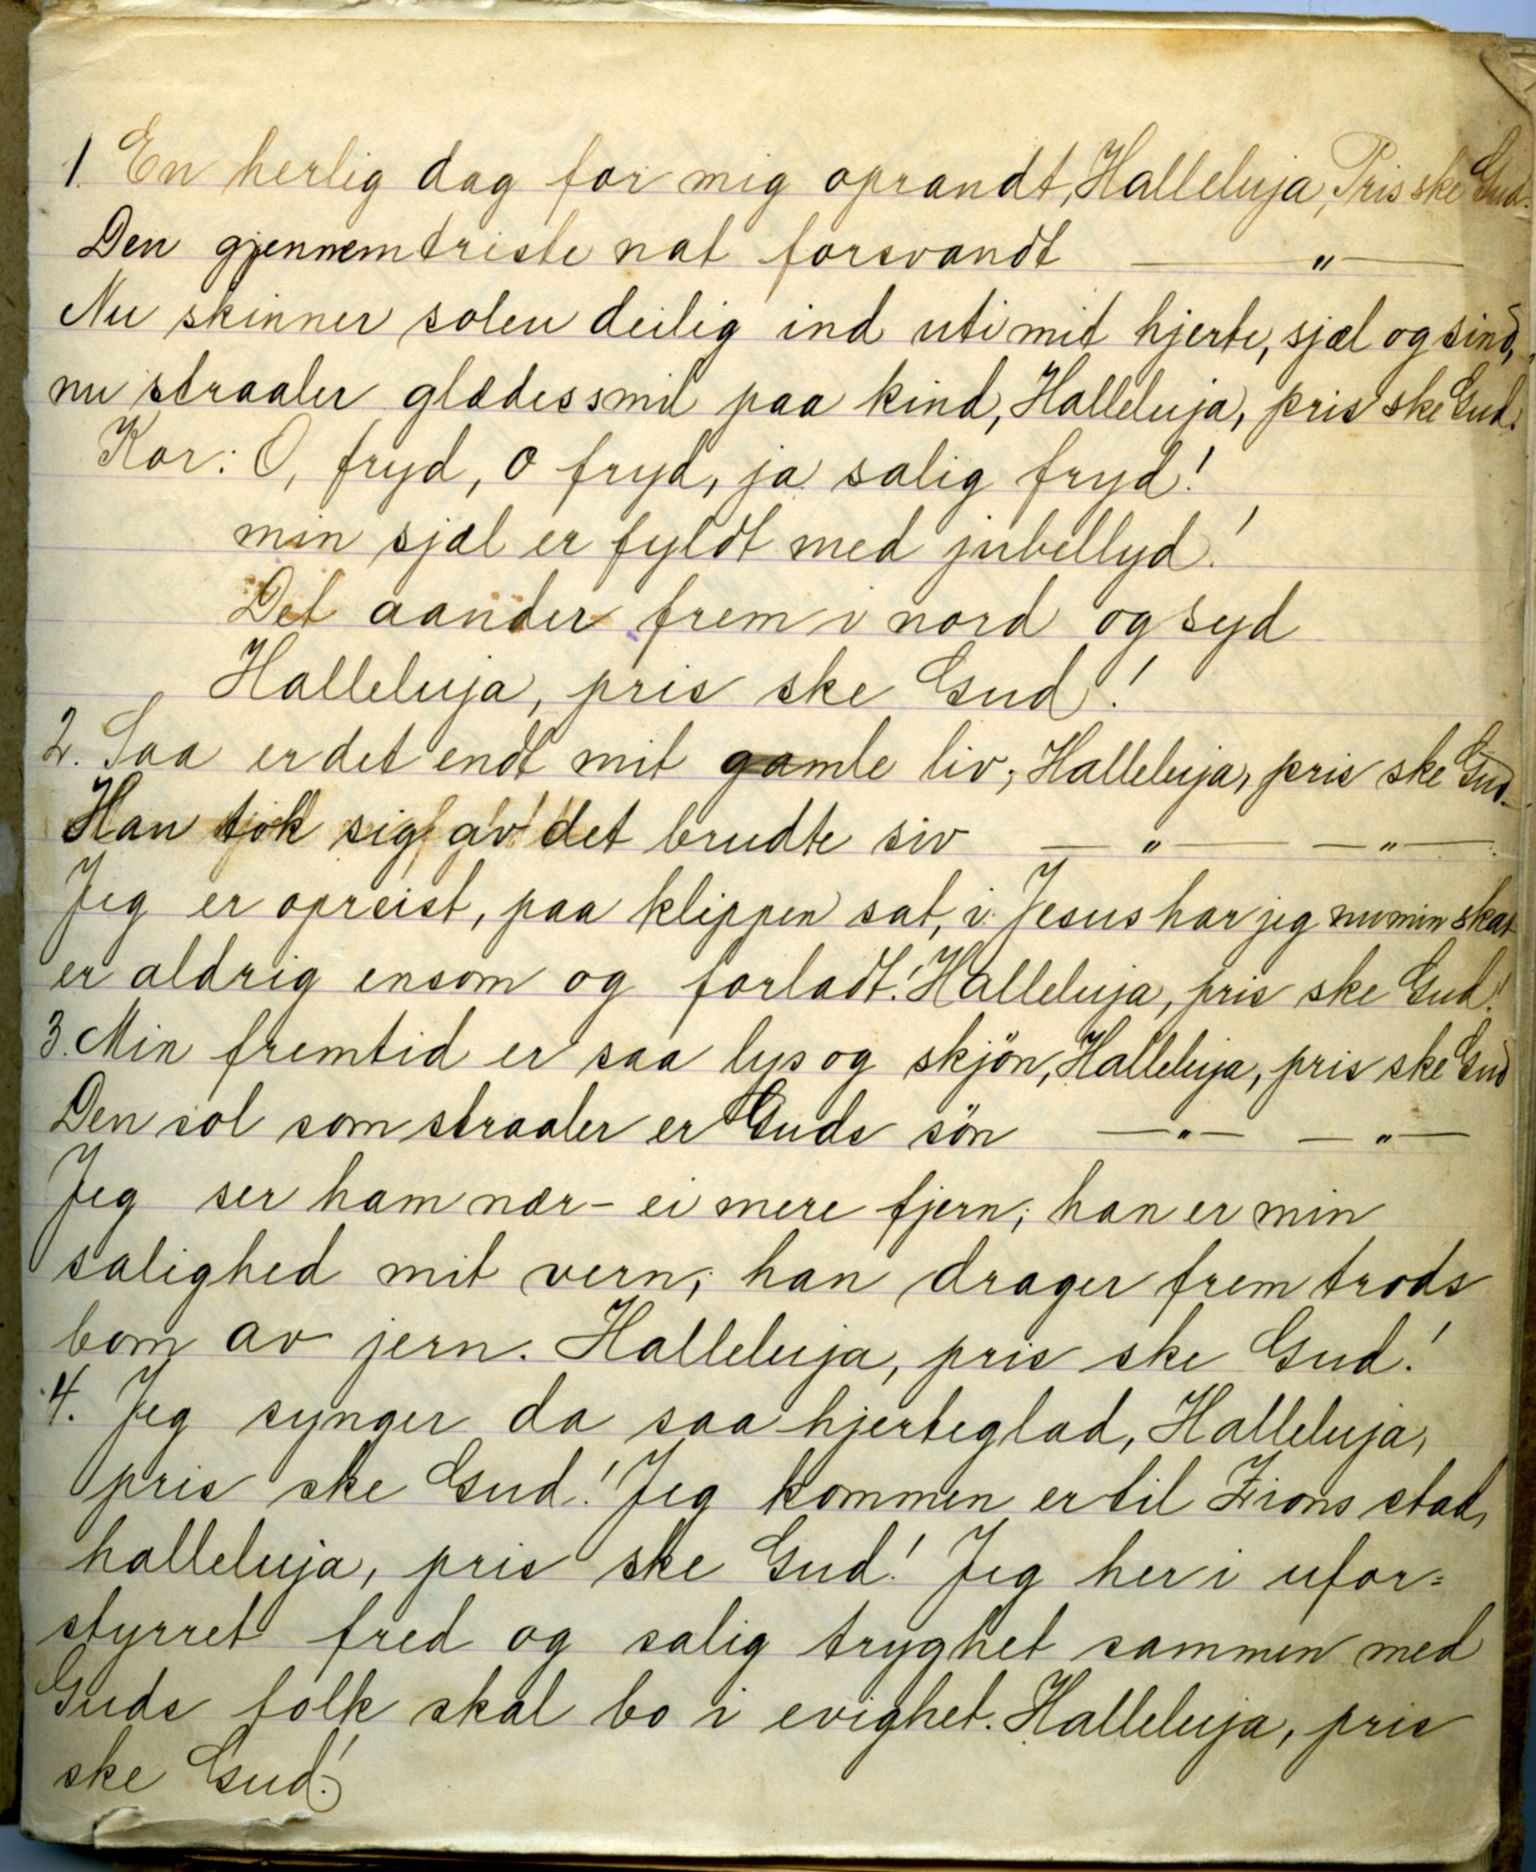 1. En herlig dag for mig oprandt, Halleluja, Pris ske Gud.
Den gjennemtriste nat forsvandt — " —
Nu skinner solen deilig ind uti mit hjerte, sjæl og sind,
nu straaler glædessmil paa kind, Halleluja, pris ske Gud.
Kor: O, fryd, o fryd, ja salig fryd!
min sjæl er fyldt med jubellyd!
Det aander frem i nord og syd
Halleluja, pris ske Gud!
2. Saa er det endt mit gamle liv, Halleluja, pris ske Gud.
Han tok sig av det brudte siv — " — — " —
Jeg er opreist, paa klippen sat, i Jesus har jeg nu min skat
er aldrig ensom og forladt! Halleluja, pris ske Gud!
3. Min fremtid er saa lys og skjön, Halleluja, pris ske Gud
Den sol som straaler er Guds sön — " — — " —
Jeg ser ham nær – ei mere fjern; han er min
salighed mit vern; han drager frem trods
bom av jern. Halleluja, pris ske Gud!
4. Jeg synger da saa hjerteglad, Halleluja,
pris ske Gud! Jeg kommen er til Zions stad,
halleluja, pris ske Gud! Jeg her i ufor=
styrret fred og salig tryghet sammen med
Guds folk skal bo i evighet. Halleluja, pris
ske Gud!